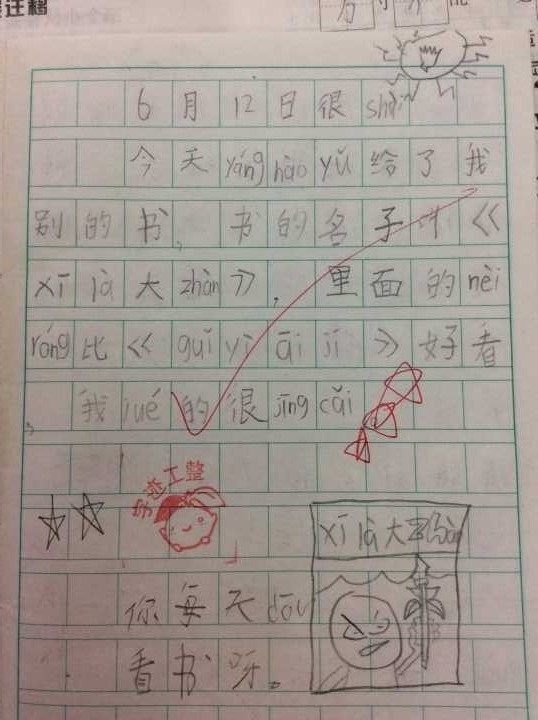 迁移
6月12日很shài
今天yánghàoyǔ给了我
别的书,书的名子叫《
xīlà大zhàn》,里面的nèi
róng比《guīyìāijí》好看
我jué的很jīngcǎi
字迹工整
xīlà大zhàn
你每天dōu
看书呀。